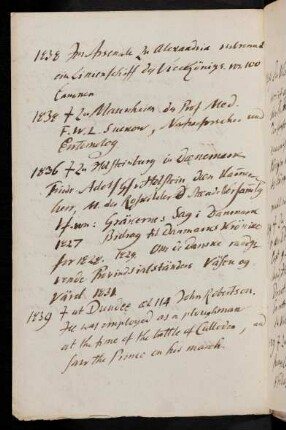 1838 Im Arsenale zu Alexandria verbrannte
ein Linienschiff des Vicekönigs von 100
Canonen
1838 † Zu Mannheim der Prof. Med.
F. W. L. Suckow, Naturforscher und
Entomolog
1836 † Zu Holsteinburg in Daenemark
Adolf Gf v. Holstein
Gränernes Sag i Danmark
1827 Bidrag til Danmarks Krönike
for 1828. 1829. Om de danske
Provindsialständers Väsen og
Värd. 1832
1839 † at Dundee at 114 John Robertson.
He was employed as a ploughman
at the time of the battle of Culloden, and
saw the Prince on his march.